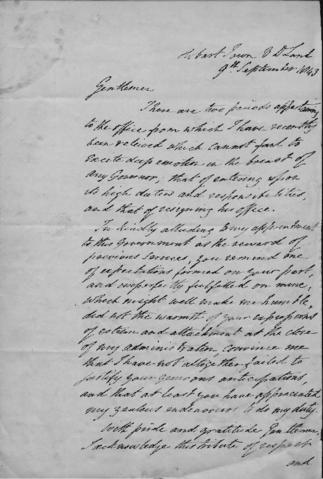 Hobart Town V D Land
9th September 1843
Gentlemen
There are two periods appertaining
to the office from which I have recently
been relieved which cannot fail to
excite deep emotion in the breast of
any Governor, that of entering upon
its high duties and responsibilities,
and that of resigning his office.
In kindly alluding to my appointment
to this Government as the reward of
previous services, you remind me
of expectations formed on your part,
and unfulfilled on mine,
which might well make me humble,
did not the warmth of your expressions
of esteem and attachment at the close
of my administration, convince me
that I have not altogether failed to
justify your generous anticipations,
and that at least you have appreciated
my zealous endeavours to do my duty.
With pride and gratitude, Gentlemen,
I acknowledge this tribute of respect
and